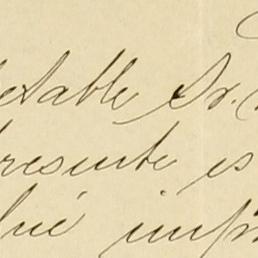 etable Sr.
resente es
ué impr